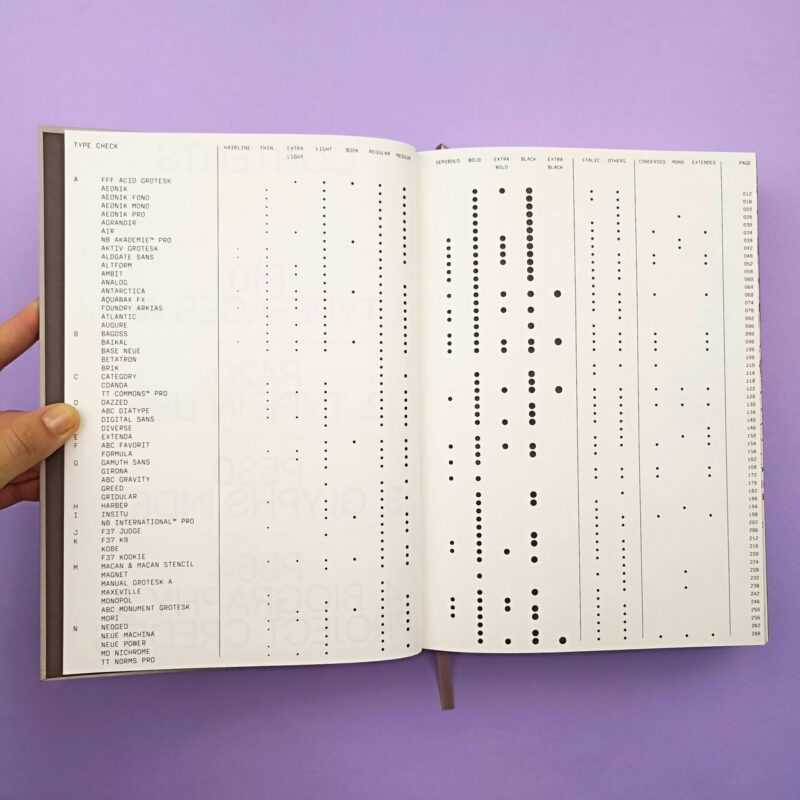 TYPE CHECK
HAIRLINE THIN EXTRA LIGHT LIGHT BOOK REGULAR MEDIUM
A FFF ACID GROTESK
AEONIK
AEONIK FONO
AEONIK MONO
AEONIK PRO
AGRANDIR
AIR
NB AKADEMIE™ PRO
AKTIV GROTESK
ALDGATE SANS
ALTFORM
AMBIT
ANALOG
ANTARCTICA
AQUAWAX FX
FOUNDRY ARKIAS
ATLANTIC
AUGURE
B BAGOSS
BAIKAL
BASE NEUE
BETATRON
BRIK
C CATEGORY
COANDA
TT COMMONS™ PRO
D DAZZED
ABC DIATYPE
DIGITAL SANS
DIVERSE
E EXTENDA
F ABC FAVORIT
FORMULA
G GAMUTH SANS
GIRONA
ABC GRAVITY
GREED
GRIDULAR
H HARBER
I INSITU
NB INTERNATIONAL™ PRO
J F37 JUDGE
K F37 K9
KOBE
F37 KOOKIE
M MACAN & MACAN STENCIL
MAGNET
MANUAL GROTESK A
MAXEVILLE
MONOPOL
ABC MONUMENT GROTESK
MORI
N NEOGEO
NEUE MACHINA
NEUE POWER
MD NICHROME
TT NORMS PRO
SEMIBOLD BOLD EXTRA BOLD BLACK EXTRA BLACK ITALIC OTHERS CONDENSED MONO EXTENDED PAGE
012
018
022
030
034
038
042
052
056
060
064
068
074
078
082
086
100
106
110
114
118
122
126
130
134
140
146
150
154
158
162
168
172
178
182
188
194
198
202
206
212
216
220
224
228
232
238
242
246
250
256
262
266